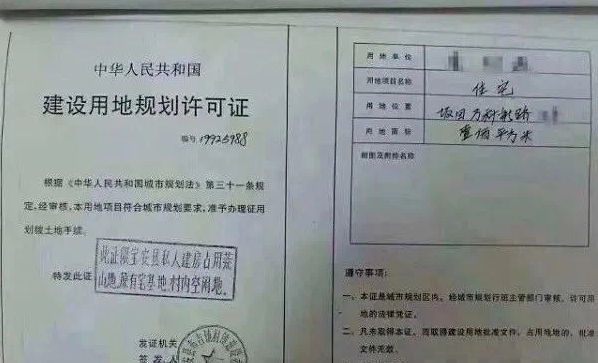 中华人民共和国
建设用地规划许可证
编号 19925988
根据《中华人民共和国城市规划法》第三十一条规
定,经审核,本用地项目符合城市规划要求,准予办理征用
划拨土地手续。
特发此证
此证限宝安县私人建房占用荒
山地、原有宅基地、村内空闲地。
发证机关
签发人
用地单位
用地项目名称 住宅
用地位置 坂田万科彩
用地面积 壹佰平方米
附图及附件名称
遵守事项:
一、本证是城市规划区内,经城市规划行政主管部门审核,许可用
地的法律凭证。
二、凡未取得本证,而取得建设用地批准文件、占用地的,批准
文件无效。